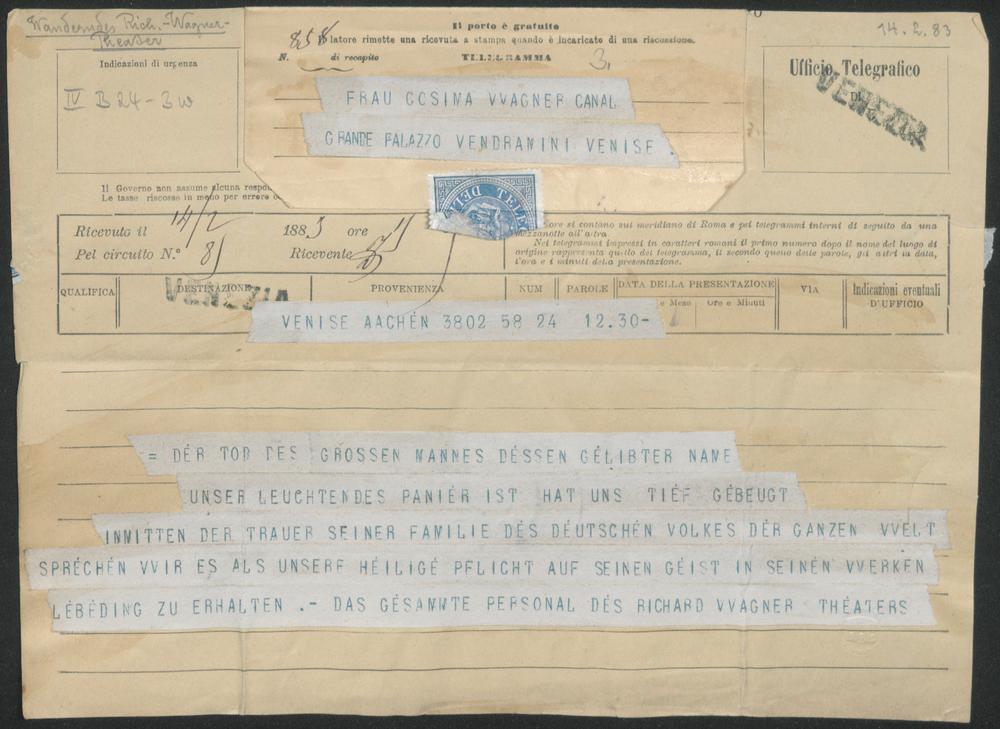 Wanderndes Rich.-Wagner-
Theater
14.2.83
Il porto è gratuito
latore rimette una ricevuta a stampa quando è incaricato di una riscossione.
N. 858 di recapito TELEGRAMMA 3.
Indicazioni di urgenza
IV B 24-3w
Ufficio Telegrafico
DI
VENEZIA
FRAU COSIMA VVAGNER CANAL
GRANDE PALAZZO VENDRAMINI VENISE
Il Governo non assume alcuna
Le tasse riscosse in meno per errore
TELE
Ricevuto il 14/2 1883 ore
Pel circuitto N.° 81 Ricevente
ore si contano sul meridiano di Roma e pei telegrammi interni di seguito da una
mezzanotte all'altra.
Nei telegrammi impressi in caratteri romani il primo numero dopo il nome del luogo di
origine rappresenta quello del telegramma, il secondo quello delle parole, gli altri la data,
l'ora e i minuti della presentazione.
QUALIFICA DESTINAZIONE PROVENIENZA NUM PAROLE DATA DELLA PRESENTAZIONE VIA Indicazioni eventuali
Mese Ore e Minuti D'UFFICIO
VENEZIA
VENISE AACHÉN 3802 58 24 12.30-
= DÉR TOD DES GROSSEN MANNES DÉSSEN GÉLIBTER NAME
UNSER LEUCHTENDES PANIÉR IST HAT UNS TIÉF GÉBEUGT
INMITTEN DER TRAUER SEINER FAMILIE DÉS DÉUTSCHÉN VOLKES DÉR GANZEN VVELT
SPRÉCHÉN VVIR ES ALS UNSERE HÉILIGÉ PFLICHT AUF SEINEN GÉIST IN SEINÉN VVERKEN
LÉBÉDING ZU ERHALTEN .- DAS GÉSAMMTE PERSONAL DÉS RICHARD VVAGNER THÉATERS